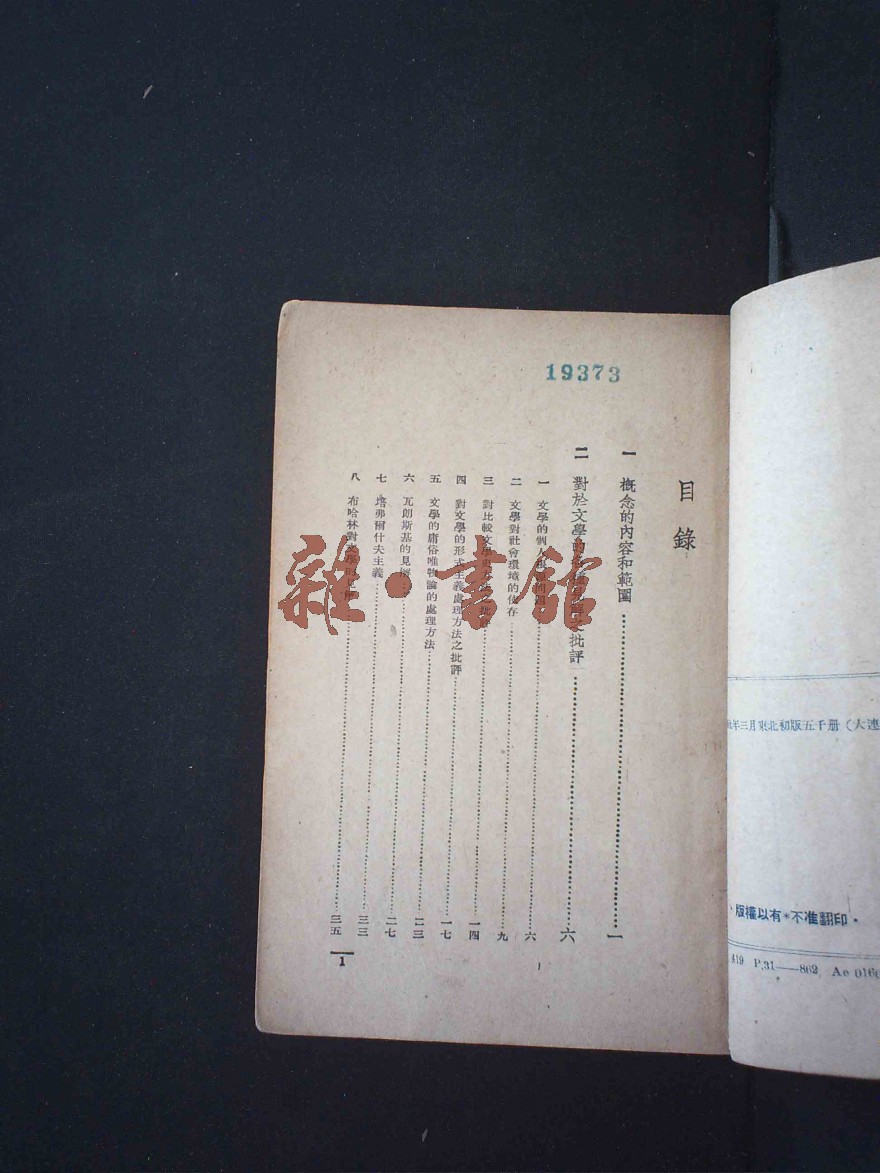 19373
目錄
一 概念的內容和範圍 一
二 對於文學的 批評 六
一 文學的 六
二 文學對社會環境的依存 九
三 對比較文學史 一四
四 對文學的形式主義處理方法之批評 一七
五 文學的庸俗唯物論的處理方法 二三
六 瓦朗斯基的見解 二七
七 培弗爾什夫主義 三三
八 布哈林對文學 三五
1
雜·書館
年三月東北初版五千册（大連
版權以有＊不准翻印·
419 P.31——862 Ae 0160